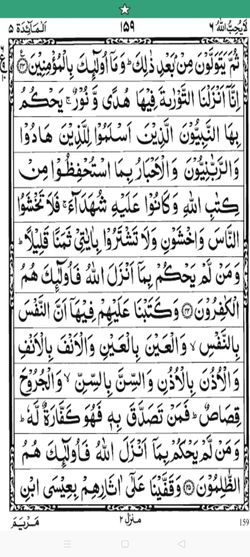 لَا يُحِبُّ اللّٰهُ ٦ ١٥٩ اَلْمَآئِدَة ٥
ثُمَّ يَتَوَلَّوْنَ مِنْۢ بَعْدِ ذٰلِكَ ؕ وَمَاۤ اُولٰٓئِكَ بِالْمُؤْمِنِيْنَ ﴿٤٣﴾
اِنَّاۤ اَنْزَلْنَا التَّوْرٰىةَ فِيْهَا هُدًى وَّ نُوْرٌ ۚ يَحْكُمُ
بِهَا النَّبِيُّوْنَ الَّذِيْنَ اَسْلَمُوْا لِلَّذِيْنَ هَادُوْا
وَالرَّبّٰنِيُّوْنَ وَالْاَحْبَارُ بِمَا اسْتُحْفِظُوْا مِنْ
كِتٰبِ اللّٰهِ وَكَانُوْا عَلَيْهِ شُهَدَآءَ ۚ فَلَا تَخْشَوُا
النَّاسَ وَاخْشَوْنِ وَلَا تَشْتَرُوْا بِاٰيٰتِيْ ثَمَنًا قَلِيْلًا ؕ
وَمَنْ لَّمْ يَحْكُمْ بِمَاۤ اَنْزَلَ اللّٰهُ فَاُولٰٓئِكَ هُمُ
الْكٰفِرُوْنَ ﴿٤٤﴾ وَكَتَبْنَا عَلَيْهِمْ فِيْهَاۤ اَنَّ النَّفْسَ
بِالنَّفْسِ ۙ وَالْعَيْنَ بِالْعَيْنِ وَالْاَنْفَ بِالْاَنْفِ
وَالْاُذُنَ بِالْاُذُنِ وَالسِّنَّ بِالسِّنِّ ۙ وَالْجُرُوْحَ
قِصَاصٌ ؕ فَمَنْ تَصَدَّقَ بِهٖ فَهُوَ كَفَّارَةٌ لَّهٗ ؕ
وَمَنْ لَّمْ يَحْكُمْ بِمَاۤ اَنْزَلَ اللّٰهُ فَاُولٰٓئِكَ هُمُ
الظّٰلِمُوْنَ ﴿٤٥﴾ وَقَفَّيْنَا عَلٰۤى اٰثَارِهِمْ بِعِيْسَى ابْنِ
منزل ٢ مَرْيَمَ
159